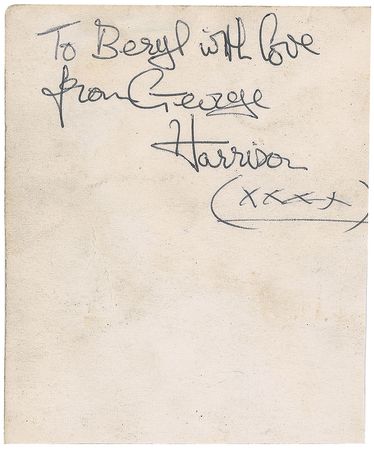 To Beryl with love
from George
Harrison
(xxxx)